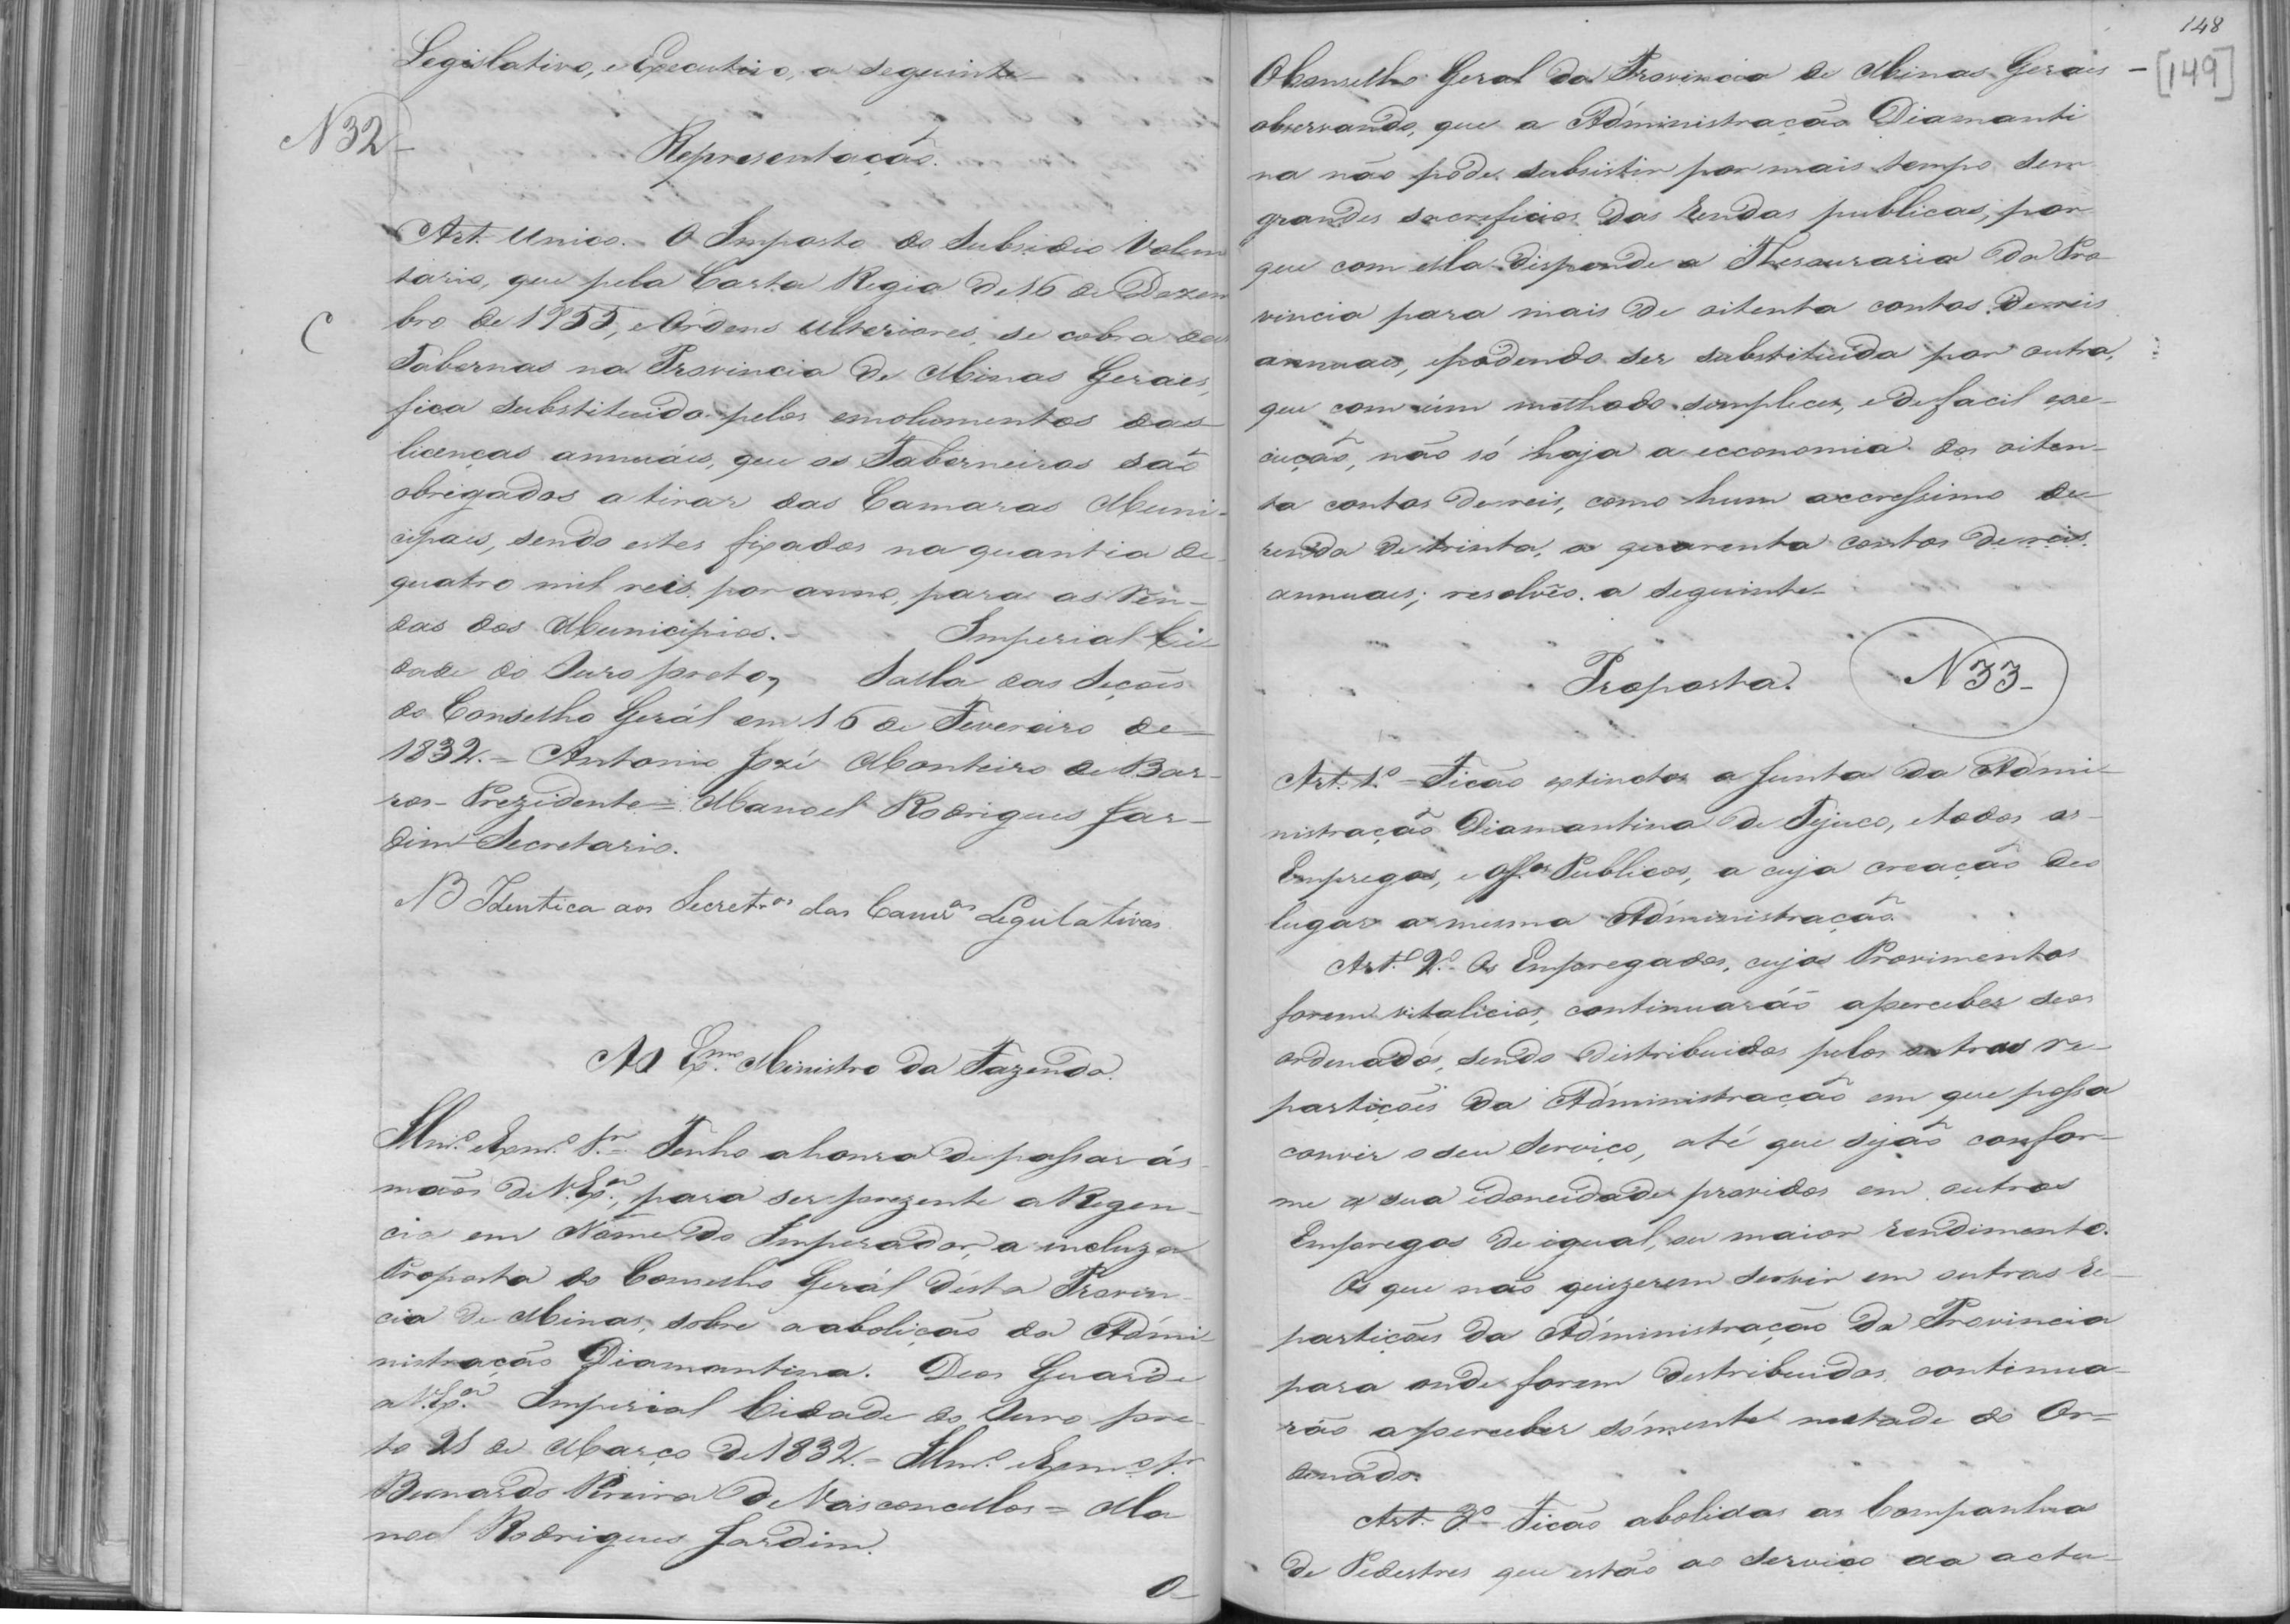 Legislativo, e Executivo, a seguinte
N 32
Representação.
Art. Unico. O Imposto do Subsidio Volun
tario, que pela Carta Regia de 16 de Dezem
bro de 1755, e Ordens ulteriores, se cobra das
C
Tabernas na Provincia de Minas Geraes,
fica substituido pelos emolumentos das
licenças annuáes, que os Taberneiros são
obrigados a tirar das Camaras Muni-
cipaes, sendo estes fixados na quantia de
quatro mil reis por anno, para as Ven-
das dos Municipios. - Imperial Ci-
dade do Ouro preto, Salla das Seções
do Conselho Gerál em 16 de Fevereiro de
1832. = Antonio José Monteiro de Bar-
ros - Prezidente = Manoel Rodrigues Jar-
dim Secretario.
NB Identica aos Secret.os das Camr.as Legislativas.
Ao Ex.mo Ministro da Fazenda.
Illm.o e Exm.o Sr. = Tenho a honra de passar ás
mãos de V. Ex.a, para ser prezente a Regen-
cia em Nome do Imperador, a incluza
Proposta do Conselho Gerál désta Provin-
cia de Minas, sobre a abolição da Admi-
nistração Diamantina. Deos Guarde
a V. Ex.a Imperial Cidade do Ouro pre-
to 21 de Março de 1832. = Illm.o e Exm.o Sr.
Bernardo Pereira de Vasconcellos = Ma
noel Rodrigues Jardim.
O
148
[149]
O Conselho Geral da Provincia de Minas Geraes -
observando, que a Administração Diamanti
na não póde subsistir por mais tempo sem
grandes sacreficios das rendas publicas, por
que com ella dispende a Thesouraria da Pro
vincia para mais de oitenta contos de reis
annuaes, e podendo ser substituida por outra,
que com um methodo simplices, e de facil exe-
cução, não só haja a ecconomia dos oiten-
ta contos de reis, como hum accressimo de
renda de trinta, a quarenta contos de reis
annuaes; resolvêo a seguinte
Proposta. N 33
Art. 1.o - Ficão extinctos a Junta da Admi-
nistração Diamantina de Tejuco, e todos os
Empregos, e Off.os Publicos, a cuja creação deo
lugar a mesma Administração.
Art.o 2.o Os Empregados, cujos Provimentos
forem vitalicios, continuarão a perceber seos
ordenados, sendo distribuidos pelas outras re-
partições da Administração em que possa
convir o seu Serviço, até que sejão confor-
me a sua idoneidade providos em outros
Empregos de igual, ou maior rendimento.
Os que não quizerem servir em outras re-
partições da Administração da Provincia
para onde forem destribuidos, continua-
rão a perceber sómente metade do Or-
denado.
Art. 3.o Ficão abolidas as Companhias
de Pedestres que estão ao serviço da actu-